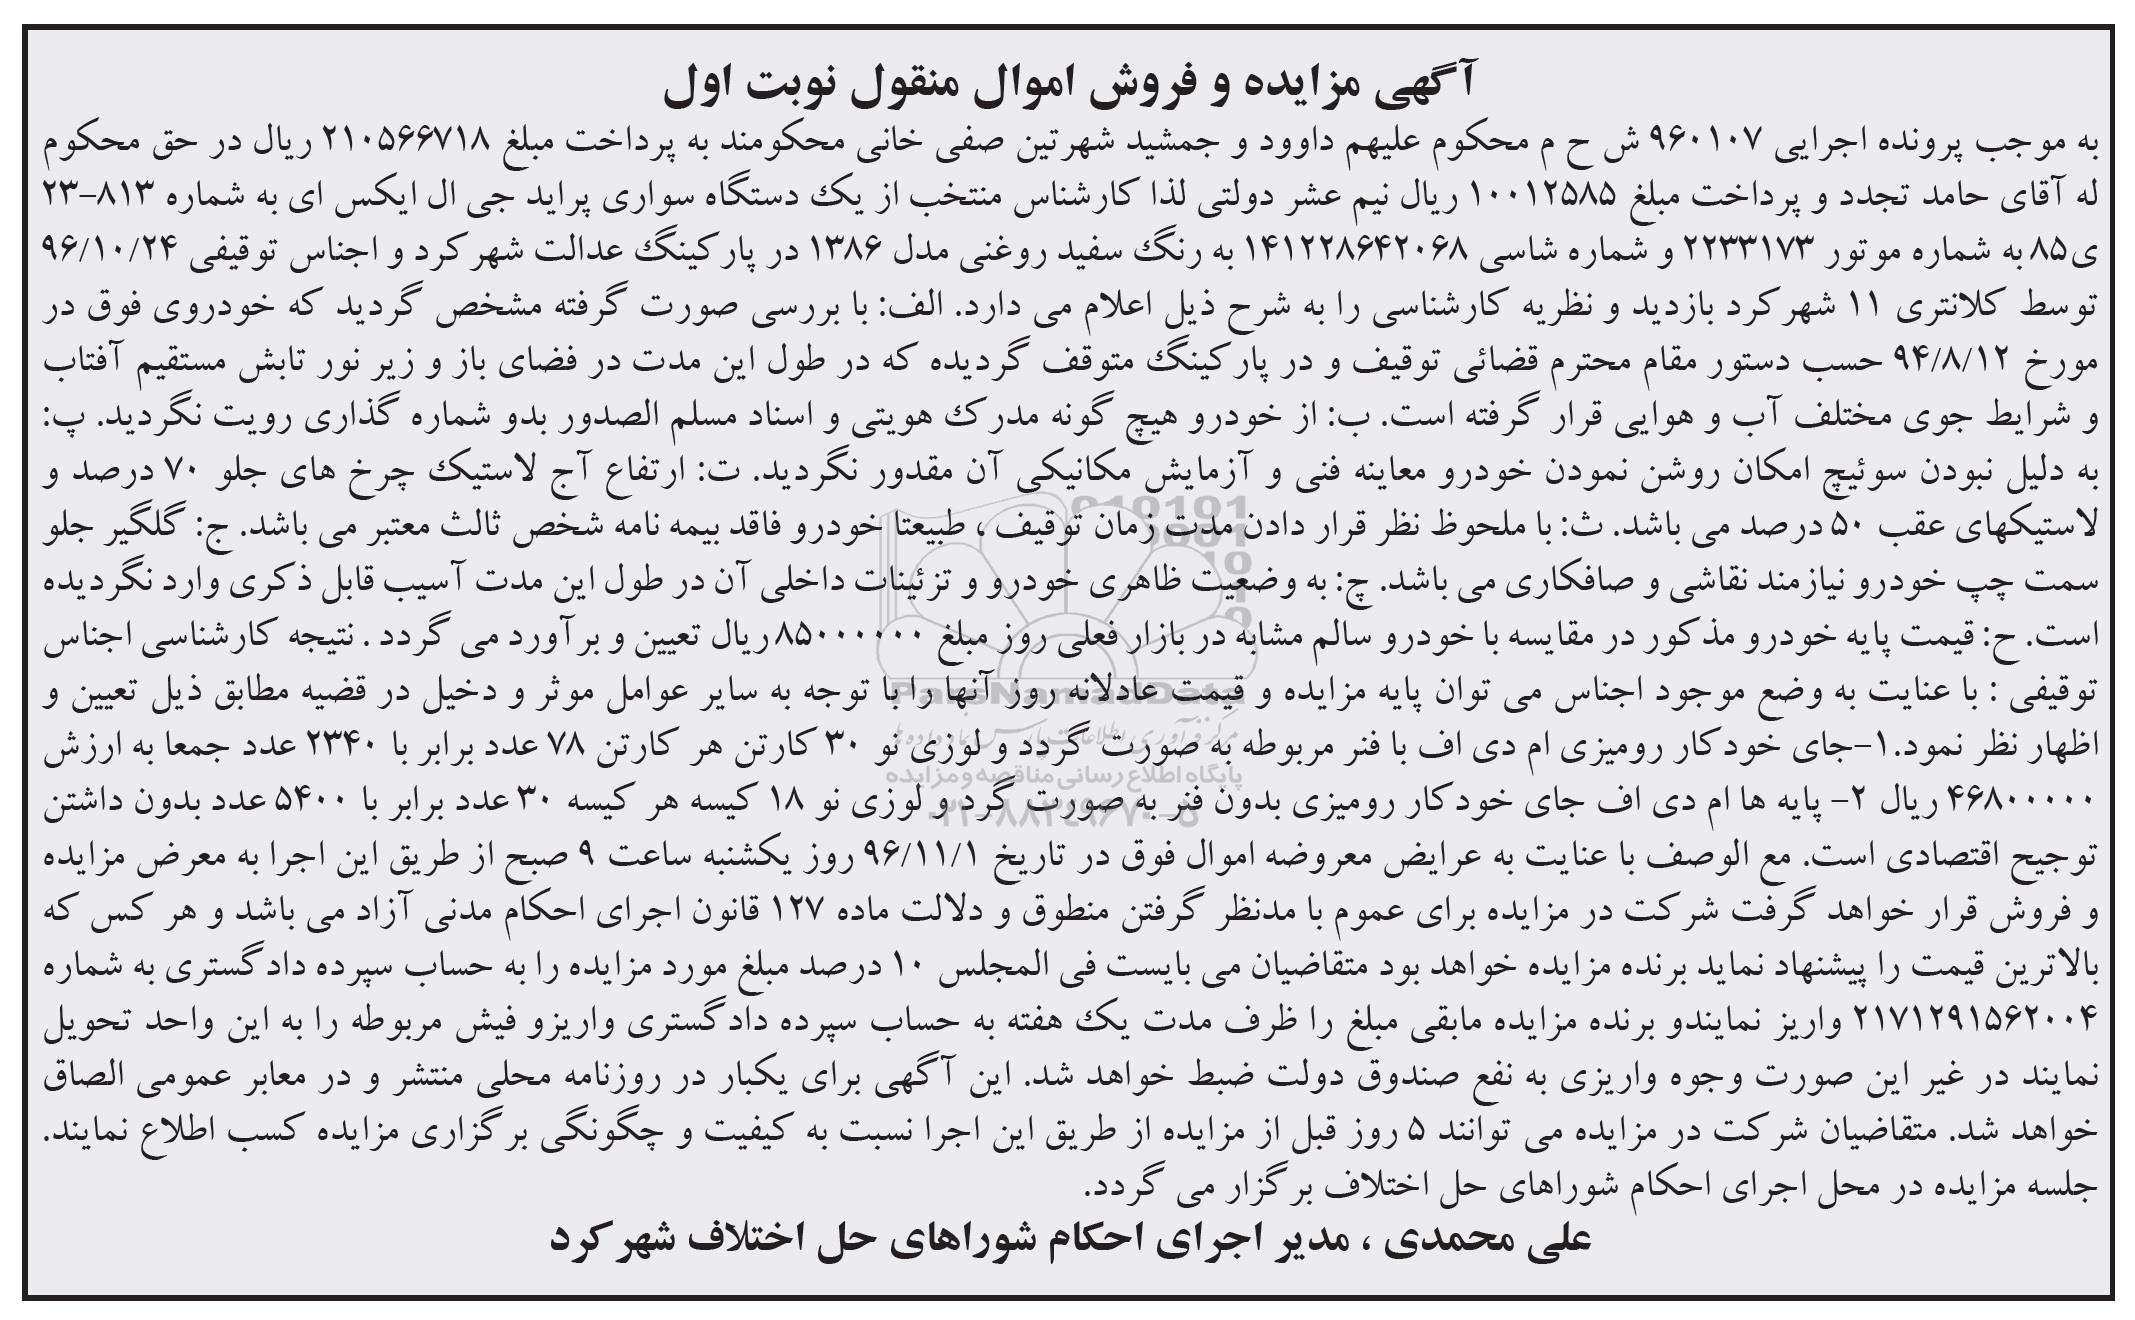 آگهی مزایده و فروش اموال منقول نوبت اول
به موجب پرونده اجرایی ۹۶۰۱۰۷ ش ح م محکوم علیهم داوود و جمشید شهرتین صفی خانی محکومند به پرداخت مبلغ ۲۱۰۵۶۶۷۱۸ ریال در حق محکوم
له آقای حامد تجدد و پرداخت مبلغ ۱۰۰۱۲۵۸۵ ریال نیم عشر دولتی لذا کارشناس منتخب از یک دستگاه سواری پراید جی ال ایکس ای به شماره ۸۱۳-۲۳
ی۸۵ به شماره موتور ۲۲۳۳۱۷۳ و شماره شاسی ۱۴۱۲۲۸۶۴۲۰۶۸ به رنگ سفید روغنی مدل ۱۳۸۶ در پارکینگ عدالت شهرکرد و اجناس توقیفی ۹۶/۱۰/۲۴
توسط کلانتری ۱۱ شهرکرد بازدید و نظریه کارشناسی را به شرح ذیل اعلام می دارد. الف: با بررسی صورت گرفته مشخص گردید که خودروی فوق در
مورخ ۹۴/۸/۱۲ حسب دستور مقام محترم قضائی توقیف و در پارکینگ متوقف گردیده که در طول این مدت در فضای باز و زیر نور تابش مستقیم آفتاب
و شرایط جوی مختلف آب و هوایی قرار گرفته است. ب: از خودرو هیچ گونه مدرک هویتی و اسناد مسلم الصدور بدو شماره گذاری رویت نگردید. پ:
به دلیل نبودن سوئیچ امکان روشن نمودن خودرو معاینه فنی و آزمایش مکانیکی آن مقدور نگردید. ت: ارتفاع آج لاستیک چرخ های جلو ۷۰ درصد و
لاستیکهای عقب ۵۰ درصد می باشد. ث: با ملحوظ نظر قرار دادن مدت زمان توقیف ، طبیعتا خودرو فاقد بیمه نامه شخص ثالث معتبر می باشد. ج: گلگیر جلو
سمت چپ خودرو نیازمند نقاشی و صافکاری می باشد. چ: به وضعیت ظاهری خودرو و تزئینات داخلی آن در طول این مدت آسیب قابل ذکری وارد نگردیده
است. ح: قیمت پایه خودرو مذکور در مقایسه با خودرو سالم مشابه در بازار فعلی روز مبلغ ۸۵۰۰۰۰۰۰ ریال تعیین و برآورد می گردد . نتیجه کارشناسی اجناس
توقیفی : با عنایت به وضع موجود اجناس می توان پایه مزایده و قیمت عادلانه روز آنها را با توجه به سایر عوامل موثر و دخیل در قضیه مطابق ذیل تعیین و
اظهار نظر نمود.۱-جای خودکار رومیزی ام دی اف با فنر مربوطه به صورت گردد و لوزی نو ۳۰ کارتن هر کارتن ۷۸ عدد برابر با ۲۳۴۰ عدد جمعا به ارزش
۴۶۸۰۰۰۰۰ ریال ۲- پایه ها ام دی اف جای خودکار رومیزی بدون فنر به صورت گرد و لوزی نو ۱۸ کیسه هر کیسه ۳۰ عدد برابر با ۵۴۰۰ عدد بدون داشتن
توجیح اقتصادی است. مع الوصف با عنایت به عرایض معروضه اموال فوق در تاریخ ۹۶/۱۱/۱ روز یکشنبه ساعت ۹ صبح از طریق این اجرا به معرض مزایده
و فروش قرار خواهد گرفت شرکت در مزایده برای عموم با مدنظر گرفتن منطوق و دلالت ماده ۱۲۷ قانون اجرای احکام مدنی آزاد می باشد و هر کس که
بالاترین قیمت را پیشنهاد نماید برنده مزایده خواهد بود متقاضیان می بایست فی المجلس ۱۰ درصد مبلغ مورد مزایده را به حساب سپرده دادگستری به شماره
۲۱۷۱۲۹۱۵۶۲۰۰۴ واریز نمایندو برنده مزایده مابقی مبلغ را ظرف مدت یک هفته به حساب سپرده دادگستری واریزو فیش مربوطه را به این واحد تحویل
نمایند در غیر این صورت وجوه واریزی به نفع صندوق دولت ضبط خواهد شد. این آگهی برای یکبار در روزنامه محلی منتشر و در معابر عمومی الصاق
خواهد شد. متقاضیان شرکت در مزایده می توانند ۵ روز قبل از مزایده از طریق این اجرا نسبت به کیفیت و چگونگی برگزاری مزایده کسب اطلاع نمایند.
جلسه مزایده در محل اجرای احکام شوراهای حل اختلاف برگزار می گردد.
علی محمدی ، مدیر اجرای احکام شوراهای حل اختلاف شهرکرد
ParsNamadData
پایگاه اطلاع رسانی مناقصه و مزایده